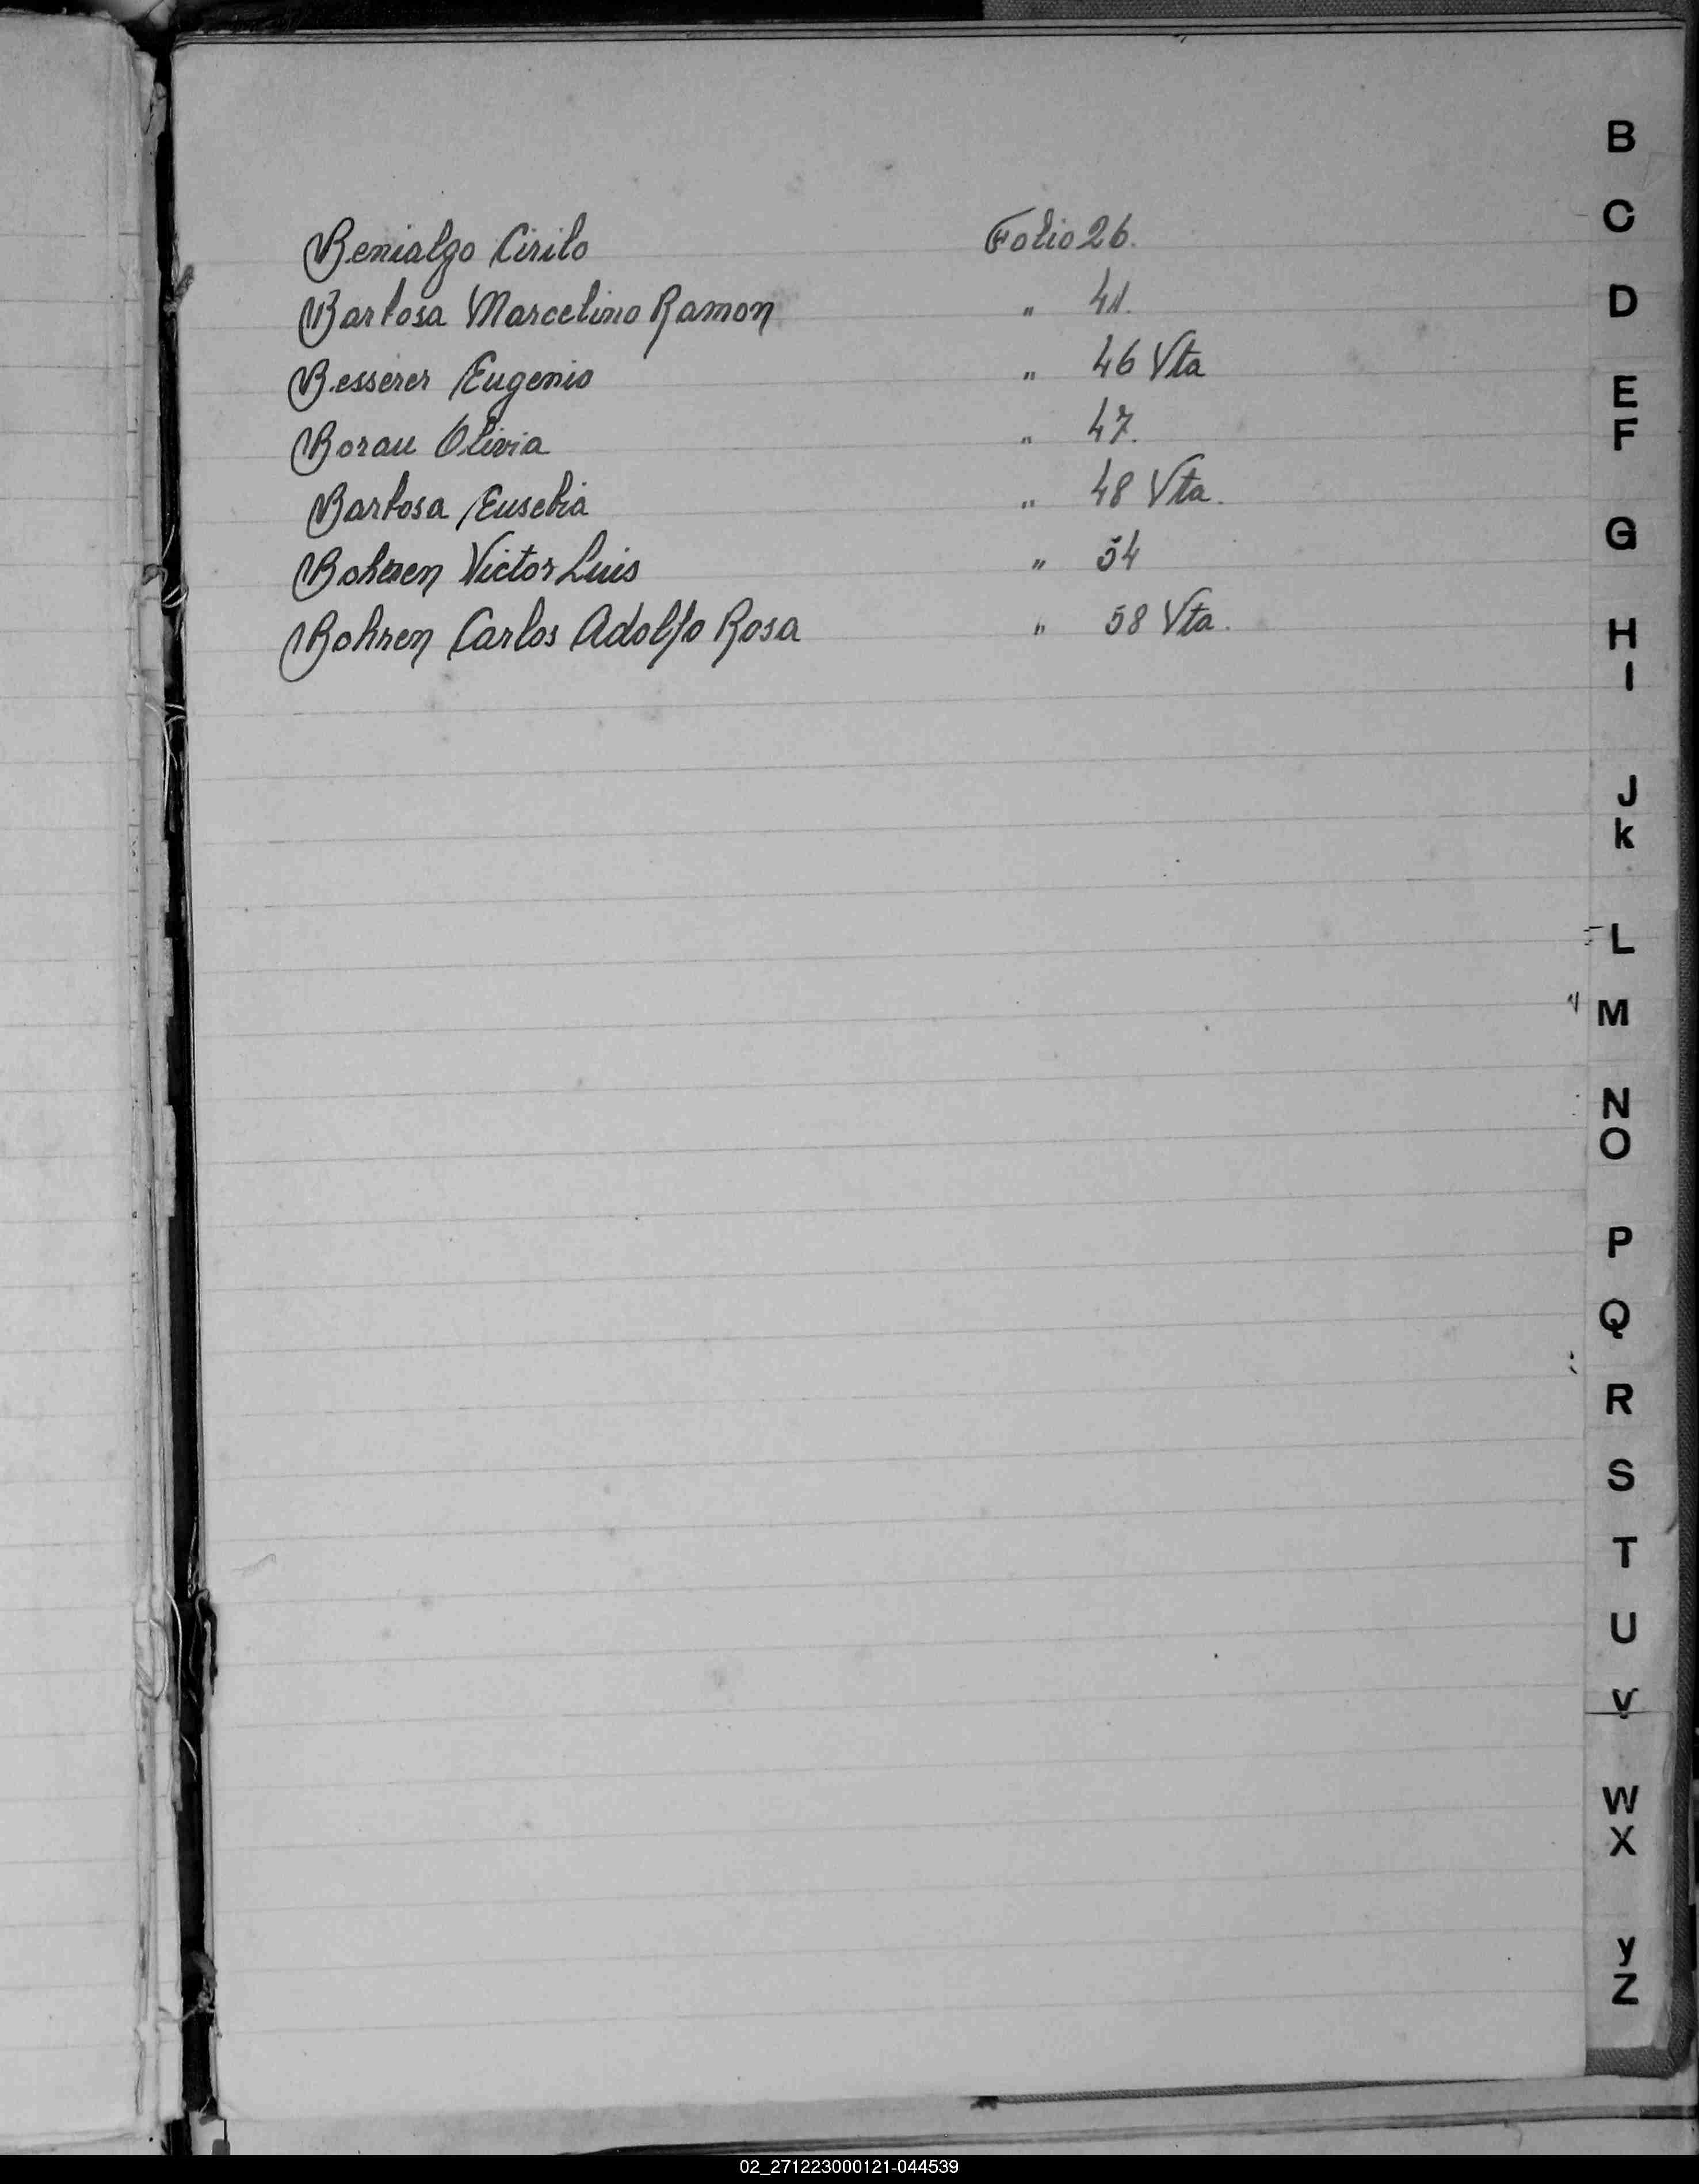 Benialgo Cirilo Folio 26.
Barbosa Marcelino Ramon " 41.
Besserer Eugenio " 46 Vta
Borau Olivia " 47.
Barbosa Eusebia " 48 Vta.
Bohren Victor Luis " 54
Bohren Carlos Adolfo Rosa " 58 Vta.
B
C
D
E
F
G
H
I
J
k
L
M
N
O
P
Q
R
S
T
U
V
W
X
y
Z
02_271223000121-044539